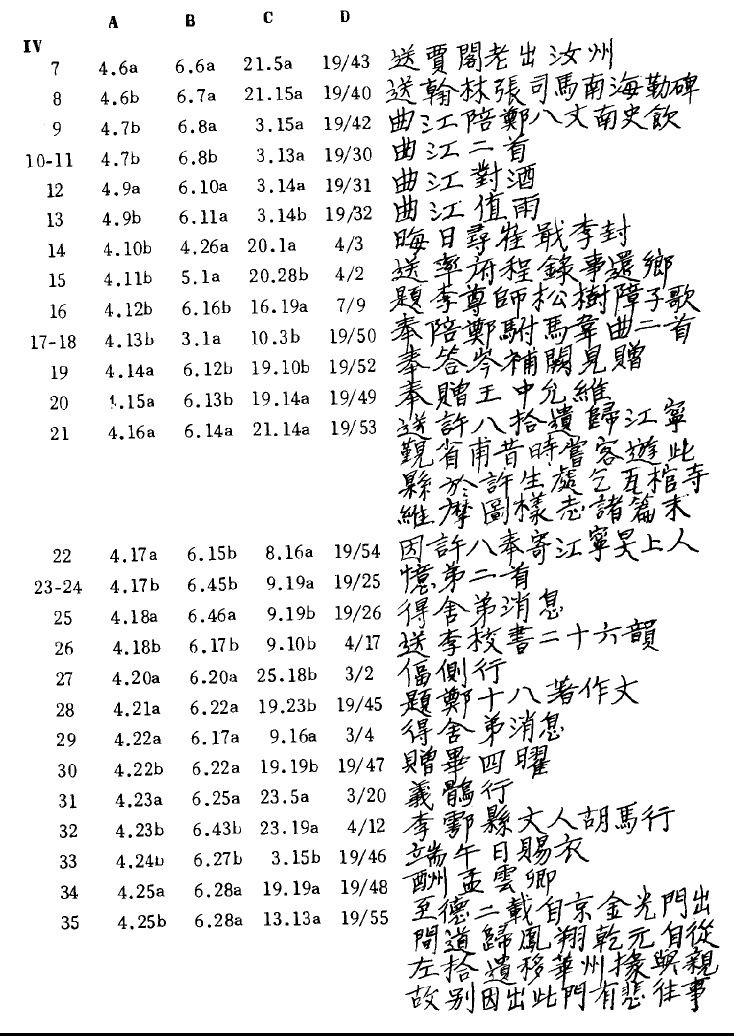 A B C D
IV
7 4.6a 6.6a 21.5a 19/43 送賈閣老出汝州
8 4.6b 6.7a 21.15a 19/40 送翰林張司馬南海勒碑
9 4.7b 6.8a 3.15a 19/42 曲江陪鄭八文南史飲
10-11 4.7b 6.8b 3.13a 19/30 曲江二首
12 4.9a 6.10a 3.14a 19/31 曲江對酒
13 4.9b 6.11a 3.14b 19/32 曲江值雨
14 4.10b 4.26a 20.1a 4/3 晦日尋崔戢李封
15 4.11b 5.1a 20.28b 4/2 送率府程錄事還鄉
16 4.12b 6.16b 16.19a 7/9 題李尊師松樹障子歌
17-18 4.13b 3.1a 10.3b 19/50 奉陪鄭駙馬韋曲二首
19 4.14a 6.12b 19.10b 19/52 奉答岑補闕見贈
20 4.15a 6.13b 19.14a 19/49 奉贈王中允維
21 4.16a 6.14a 21.14a 19/53 送許八拾遺歸江寧
覲省甫昔時嘗客遊此
縣於許生處乞瓦棺寺
維摩圖樣志諸篇末
22 4.17a 6.15b 8.16a 19/54 因許八奉寄江寧旻上人
23-24 4.17b 6.45b 9.19a 19/25 憶弟二首
25 4.18a 6.46a 9.19b 19/26 得舍弟消息
26 4.18b 6.17b 9.10b 4/17 送李校書二十六韻
27 4.20a 6.20a 25.18b 3/2 偪側行
28 4.21a 6.22a 19.23b 19/45 題鄭十八著作文
29 4.22a 6.17a 9.16a 3/4 得舍弟消息
30 4.22b 6.22a 19.19b 19/47 贈畢四曜
31 4.23a 6.25a 23.5a 3/20 義鶻行
32 4.23b 6.43b 23.19a 4/12 李鄠縣丈人胡馬行
33 4.24b 6.27b 3.15b 19/46 端午日賜衣
34 4.25a 6.28a 19.19a 19/48 酬孟雲卿
35 4.25b 6.28a 13.13a 19/55 至德二載自京金光門出
間道歸鳳翔乾元自從
左拾遺移華州掾與親
故別因出此門有悲往事